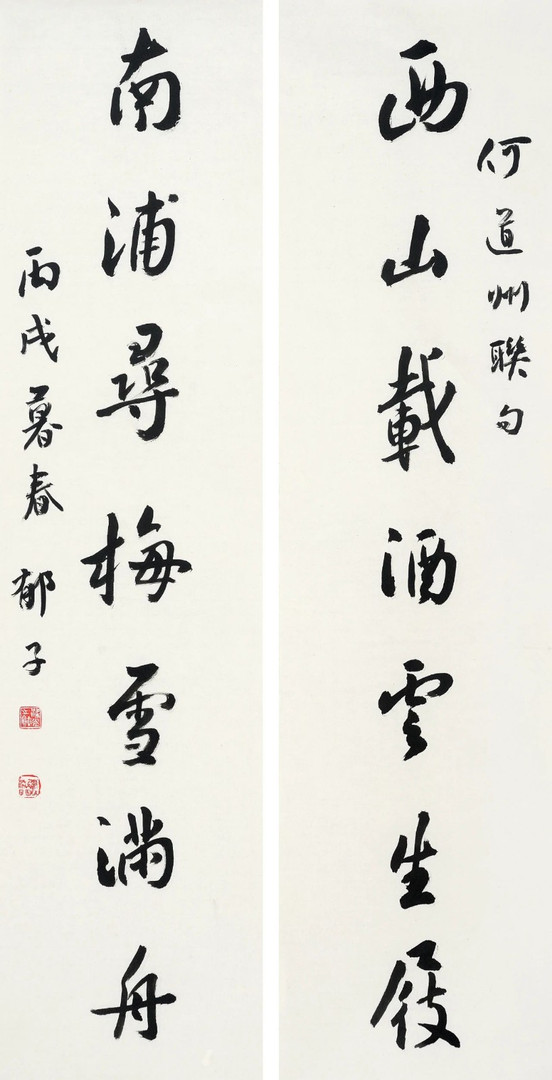 何道州聯句
西山載酒雲生屐
南浦尋梅雪滿舟
丙戌暮春 郁子